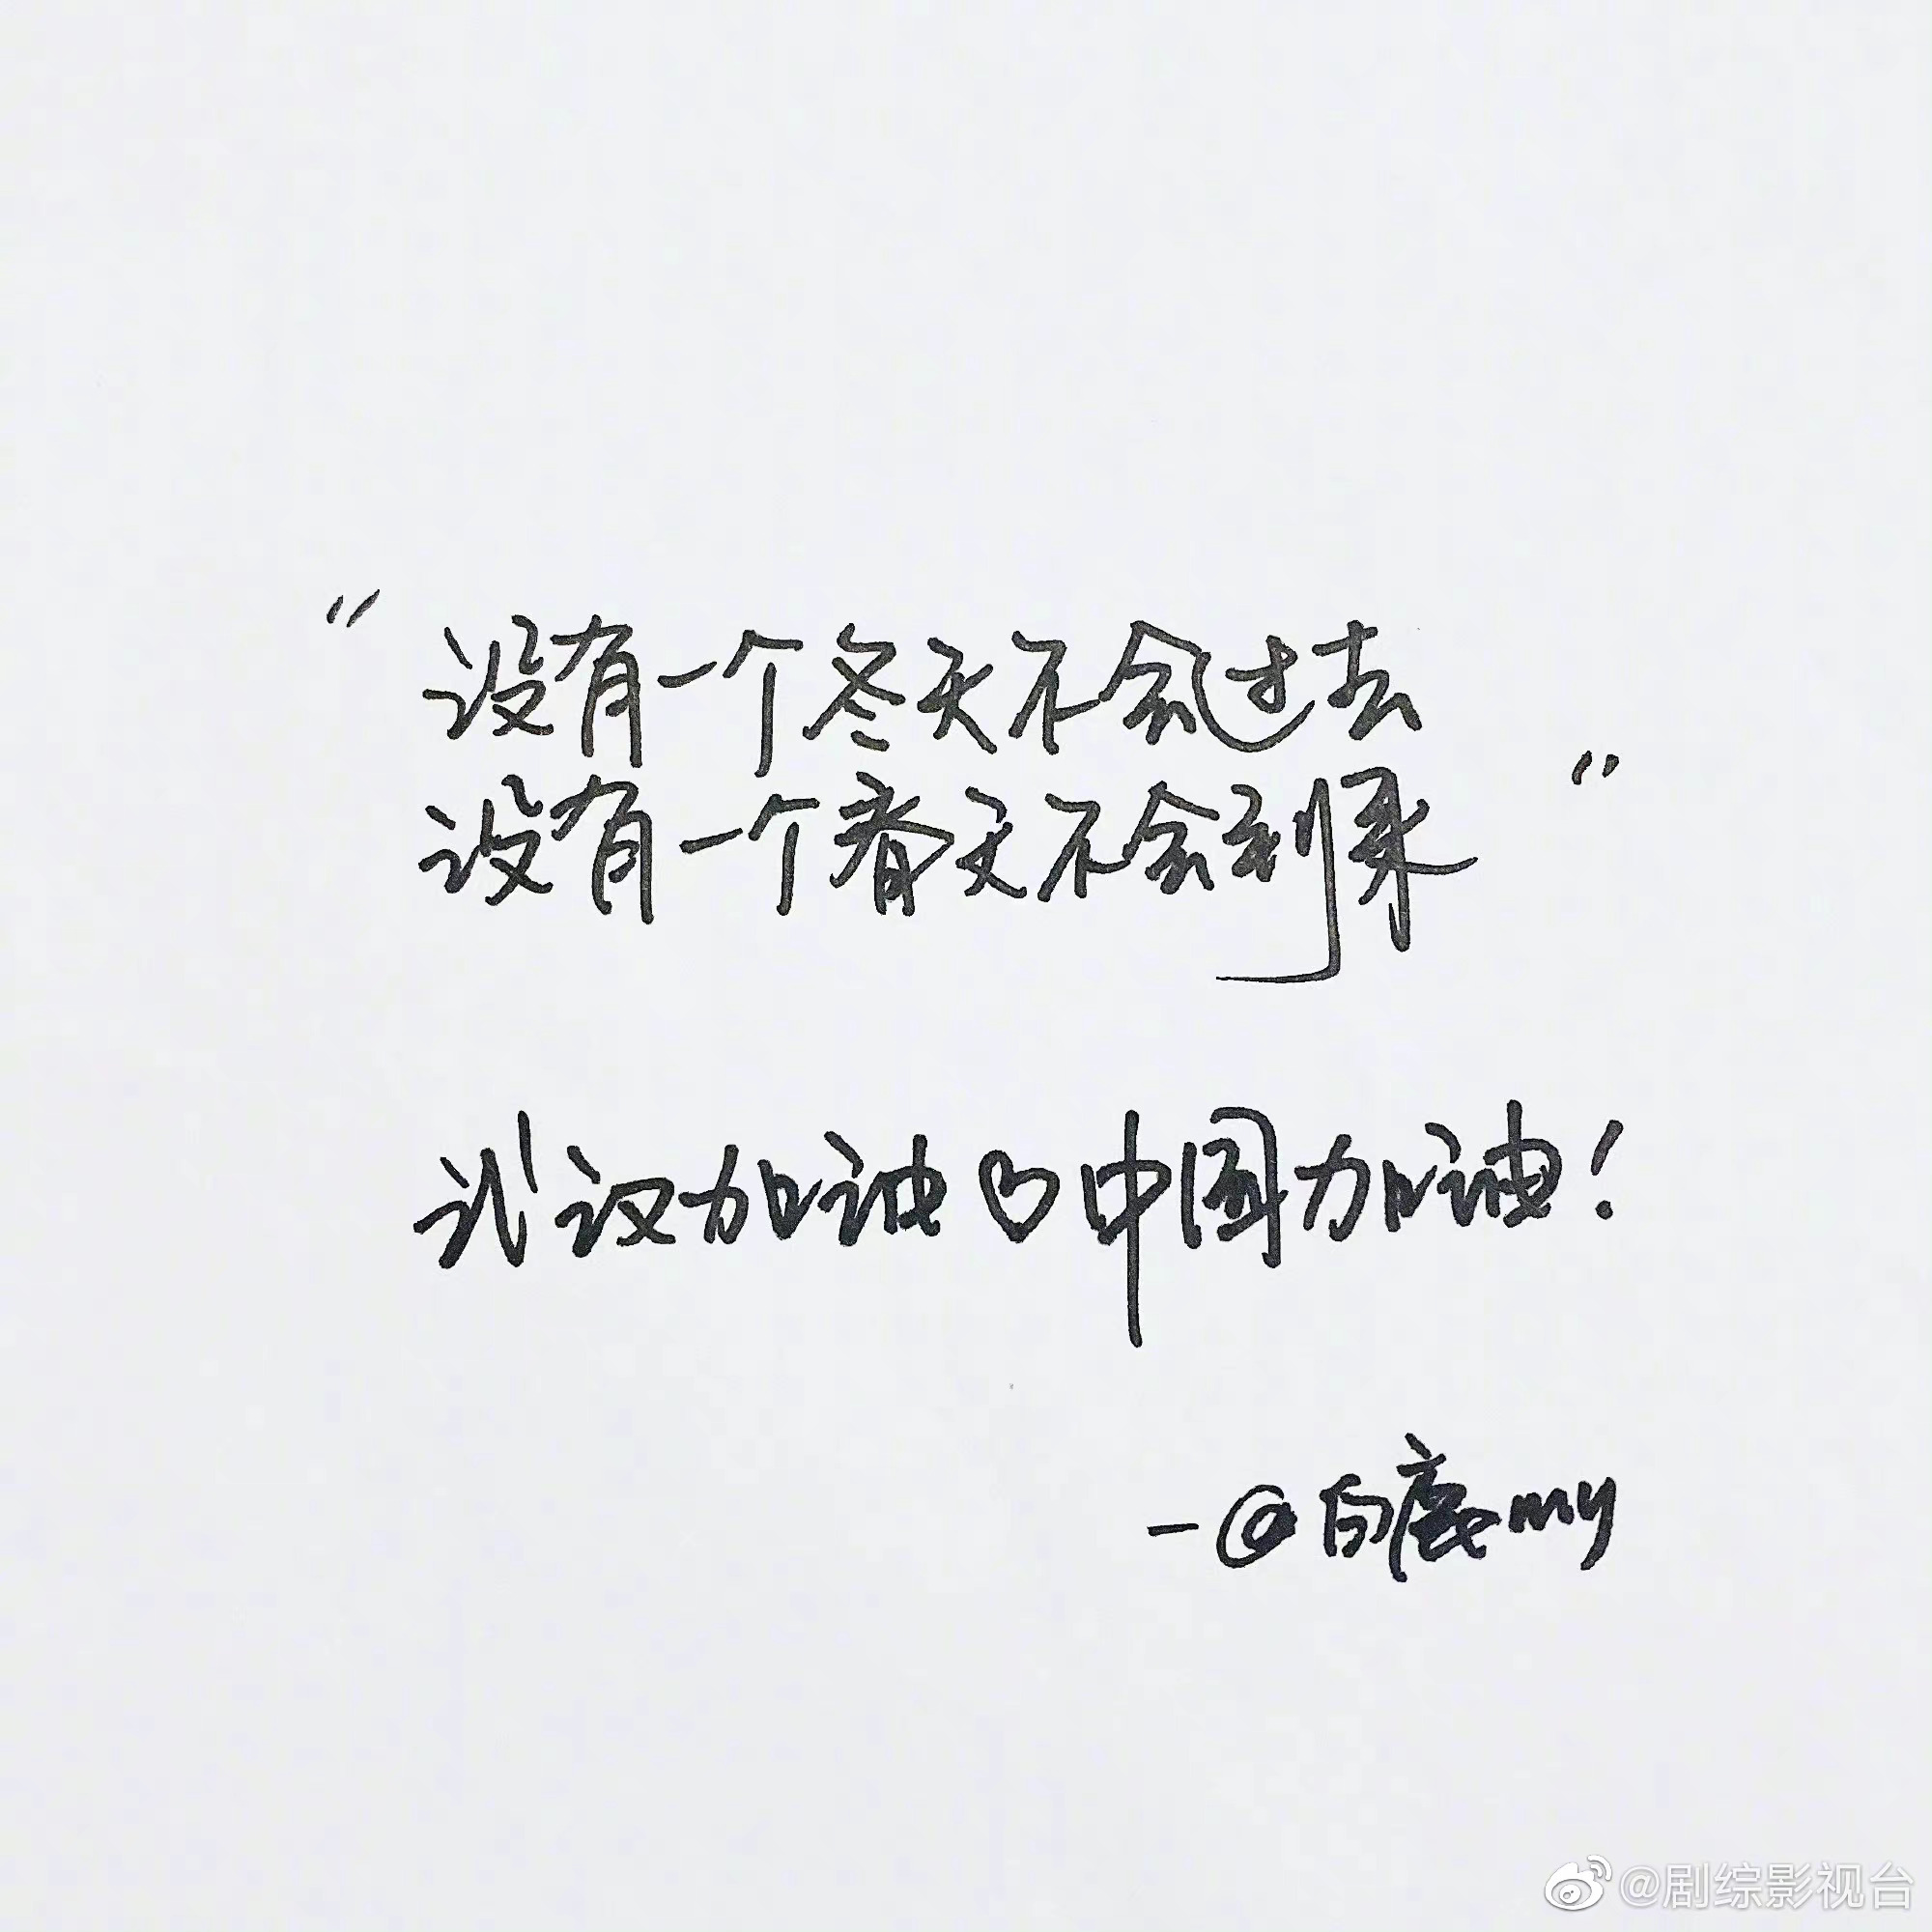 “没有一个冬天不会过去
没有一个春天不会到来”
武汉加油♡中国加油！
-@白鹿my
@剧综影视台